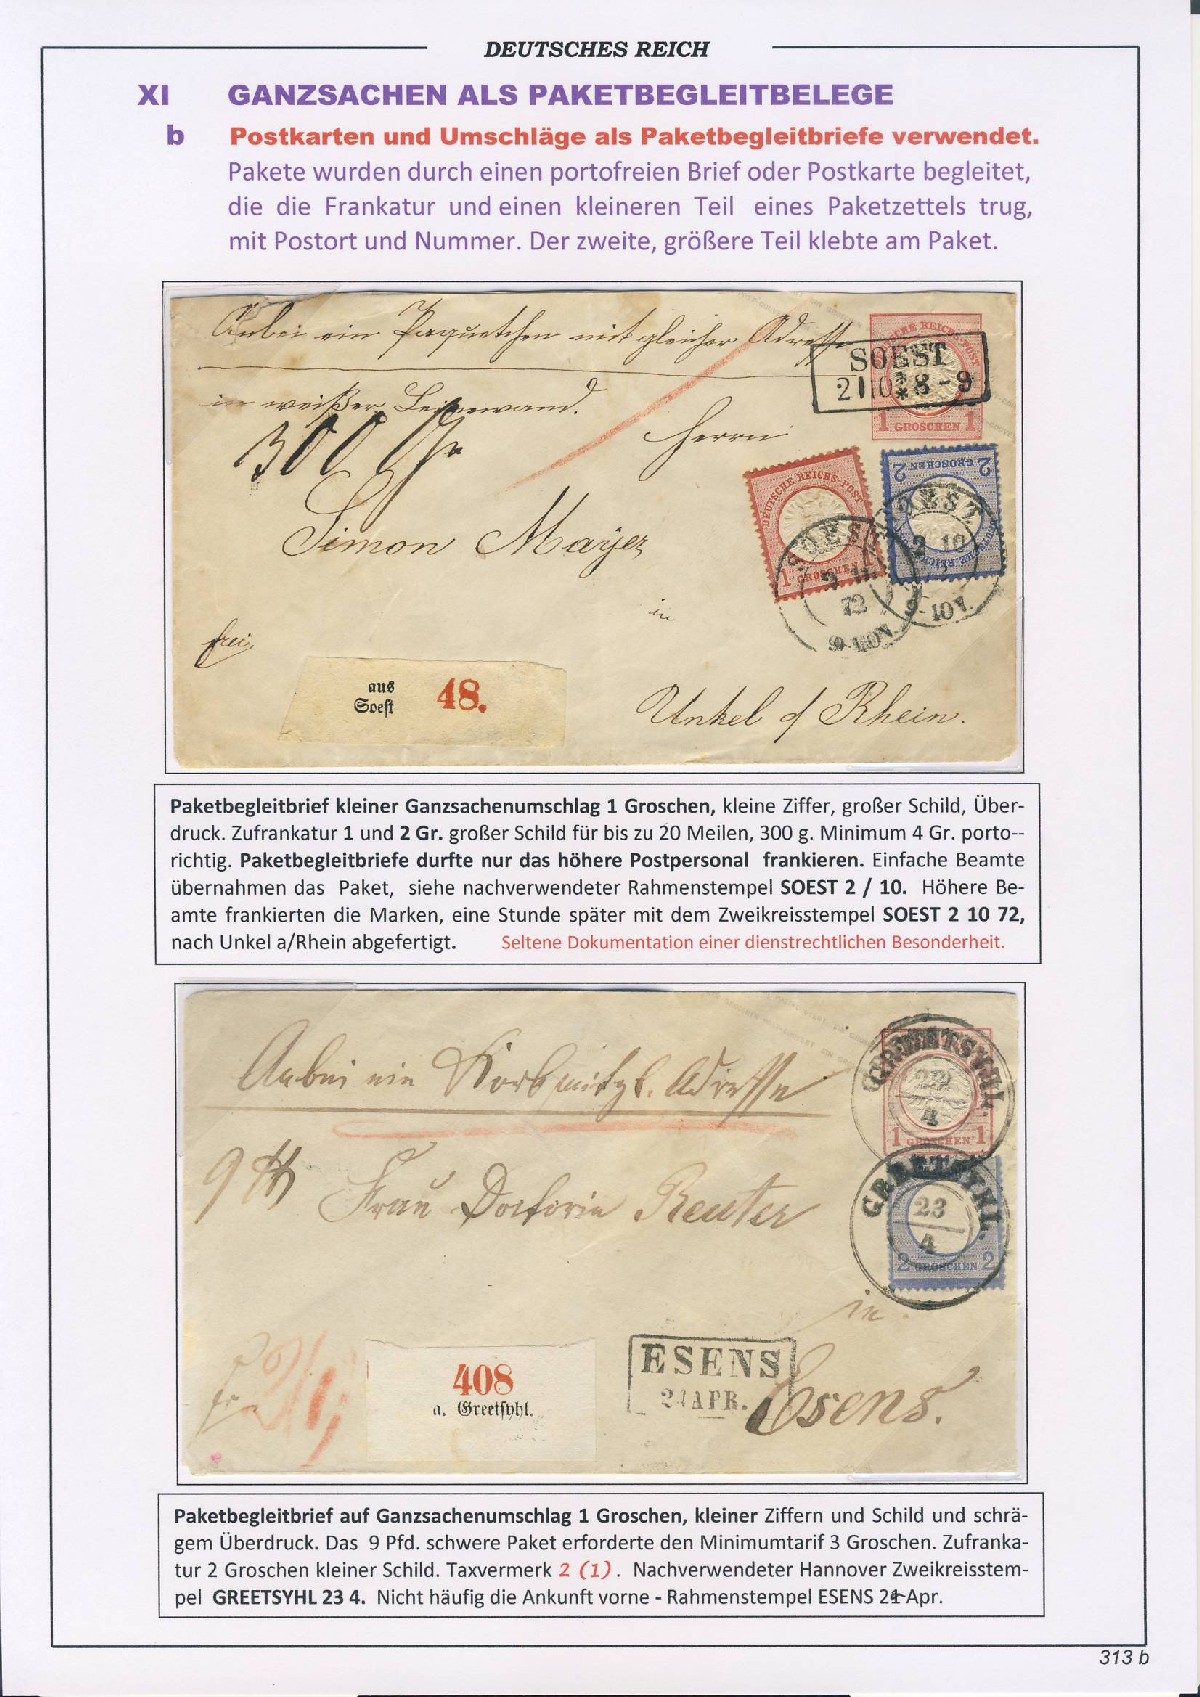 DEUTSCHES REICH
XI GANZSACHEN ALS PAKETBEGLEITBELEGE
b Postkarten und Umschläge als Paketbegleitbriefe verwendet.
Pakete wurden durch einen portofreien Brief oder Postkarte begleitet,
die die Frankatur und einen kleineren Teil eines Paketzettels trug,
mit Postort und Nummer. Der zweite, größere Teil klebte am Paket.
Anbei ein Paquetchen mit gleicher Adresse
in weißer Leinewand.
SOEST
1 GROSCHEN 1
300 Gr
Herrn
2 GROSCHEN 2
DEUTSCHE REICHS-POST
1 GROSCHEN
SOEST
2 10
72
SOEST
2 10
Simon Mayer
in
frei
aus
Soest
48.
Unkel a/ Rhein.
Paketbegleitbrief kleiner Ganzsachenumschlag 1 Groschen, kleine Ziffer, großer Schild, Über-
druck. Zufrankatur 1 und 2 Gr. großer Schild für bis zu 20 Meilen, 300 g. Minimum 4 Gr. porto--
richtig. Paketbegleitbriefe durfte nur das höhere Postpersonal frankieren. Einfache Beamte
übernahmen das Paket, siehe nachverwendeter Rahmenstempel SOEST 2 / 10. Höhere Be-
amte frankierten die Marken, eine Stunde später mit dem Zweikreisstempel SOEST 2 10 72,
nach Unkel a/Rhein abgefertigt. Seltene Dokumentation einer dienstrechtlichen Besonderheit.
Anbei ein Korb mit gl. Adresse
GREETSYHL.
23
4
1 GROSCHEN 1
9 ℔
Frau Doctorin Reuter
GREETSYHL.
23
4
2 GROSCHEN 2
in
408
a. Greetsyhl.
ESENS
24 APR.
Esens.
Paketbegleitbrief auf Ganzsachenumschlag 1 Groschen, kleiner Ziffern und Schild und schrä-
gem Überdruck. Das 9 Pfd. schwere Paket erforderte den Minimumtarif 3 Groschen. Zufranka-
tur 2 Groschen kleiner Schild. Taxvermerk 2 (1). Nachverwendeter Hannover Zweikreisstem-
pel GREETSYHL 23 4. Nicht häufig die Ankunft vorne - Rahmenstempel ESENS 24 Apr.
313 b